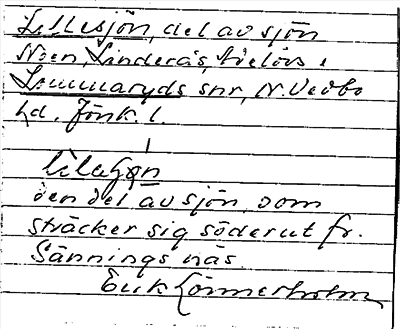 Lillesjön, del av sjön
Noen, Linderås, Adelövs o
Lommaryds snr, N. Vedbo
hd. Jönk. l.
den del av sjön, som
sträcker sig söderut fr.
Sännings näs
Erik Lönnerholm